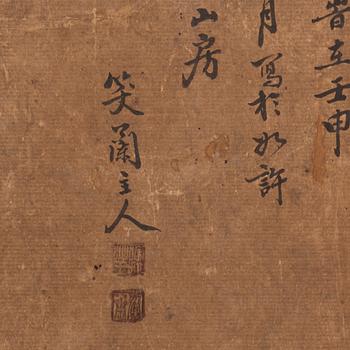 峕在壬申
月寫於如許
山房
笑蘭主人